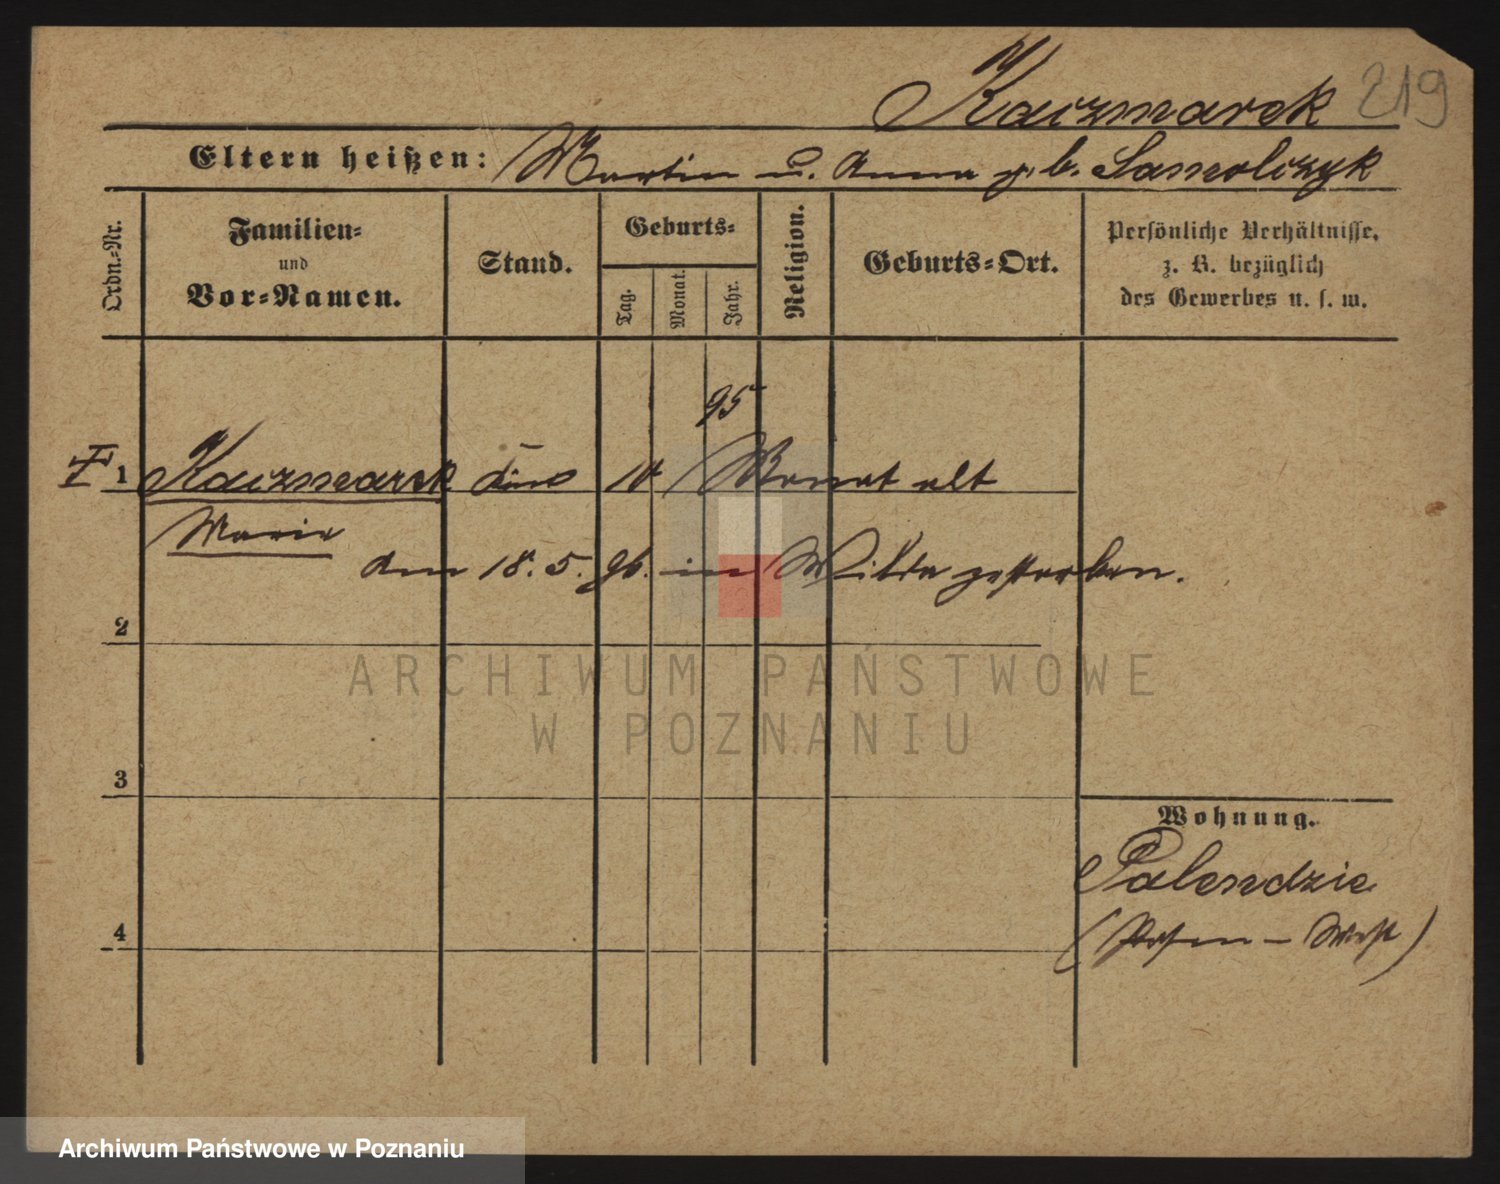 Kaczmarek 219
Eltern heißen: Martin u. Anna geb. Samolczyk
Ordn.-Nr.
Familien-
und
Vor-Namen.
Stand.
Geburts-
Tag.
Monat.
Jahr.
Religion.
Geburts-Ort.
Persönliche Verhältnisse,
z. B. bezüglich
des Gewerbes u. s. w.
95
1 Kaczmarek 10 Monat alt
Marie
am 18. 5. 96. in Wilda gestorben.
2
ARCHIWUM PAŃSTWOWE
W POZNANIU
3
Wohnung.
Palendzie
(Posen - West)
4
Archiwum Państwowe w Poznaniu